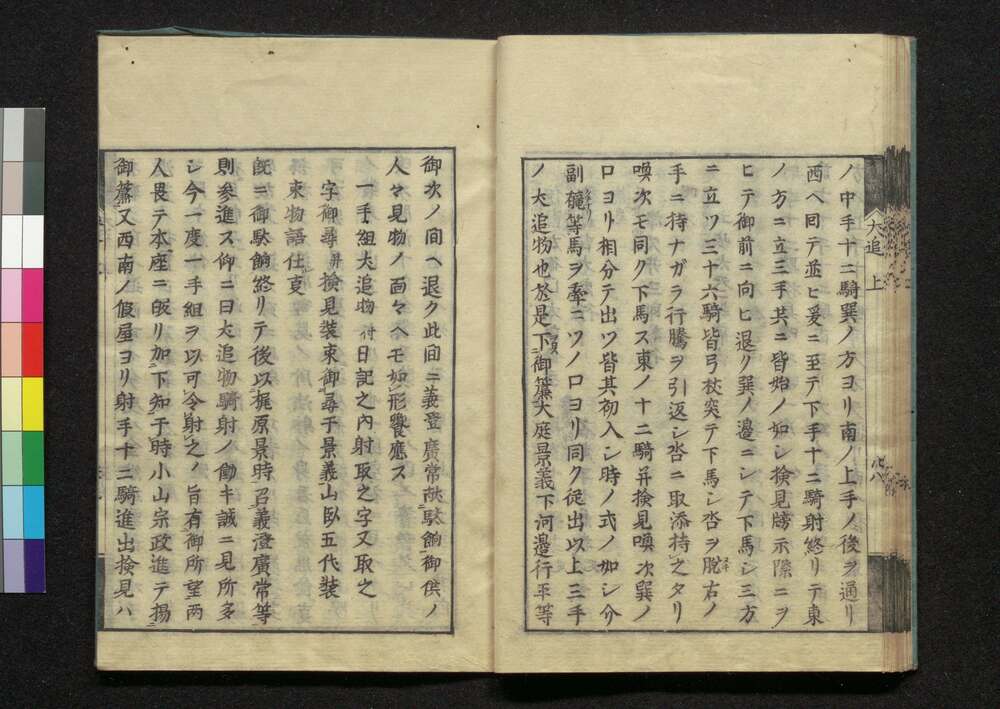 犬追　上
ノ中手十二騎巽ノ方ヨリ南ノ上手ノ後ヲ通リ
西ヘ回テ並ヒ爰ニ至テ下手十二騎射終リテ東
ノ方ニ立三手共ニ皆始ノ如シ検見牓示際ニヲ
ヒテ御前ニ向ヒ退ク巽ノ邊ニシテ下馬シ三方
ニ立ツ三十六騎皆弓杖突テ下馬シ沓ヲ脱右ノ
手ニ持ナガラ行騰ヲ引返シ沓ニ取添持之タリ
喚次モ同ク下馬ス東ノ十二騎并検見喚次巽ノ
口ヨリ相分テ出ツ皆其初入シ時ノ式ノ如シ介
副等馬ヲ牽ニツノ口ヨリ同ク従出以上三手
ノ犬追物也於是下御簾大庭景義下河邊行平等
御次ノ間ヘ退ク此間ニ義登廣常献駄餉御供ノ
人々見物ノ面々ヘモ如形饗應ス
一手組犬追物付日記之内射取之字又取之
字御尋并検見装束御尋于景義山臥五代装
束物語仕叓
既ニ御駄餉終リテ後以梶原景時召義澄廣常等
則参進ス仰ニ曰犬追物騎射ノ働キ誠ニ見所多
シ今一度一手組ヲ以可令射之ノ旨有御所望両
人畏テ本座ニ皈リ加下知于時小山宗政進テ揚
御簾又西南ノ假屋ヨリ射手十二騎進出検見ハ